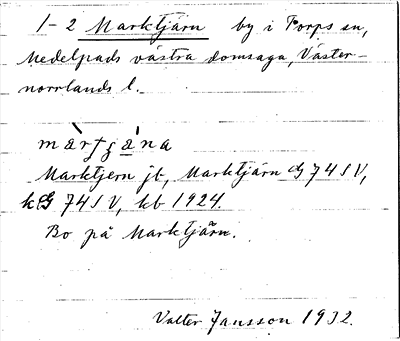 1-2 Marktjärn by i Torps sn,
Medelpads västra domsaga, Väster-
norrlands l.
Marktjern jb, Marktjärn 74 SV,
74 SV, kb 1924.
Bo på Marktjärn.
Valter Jansson 1932.